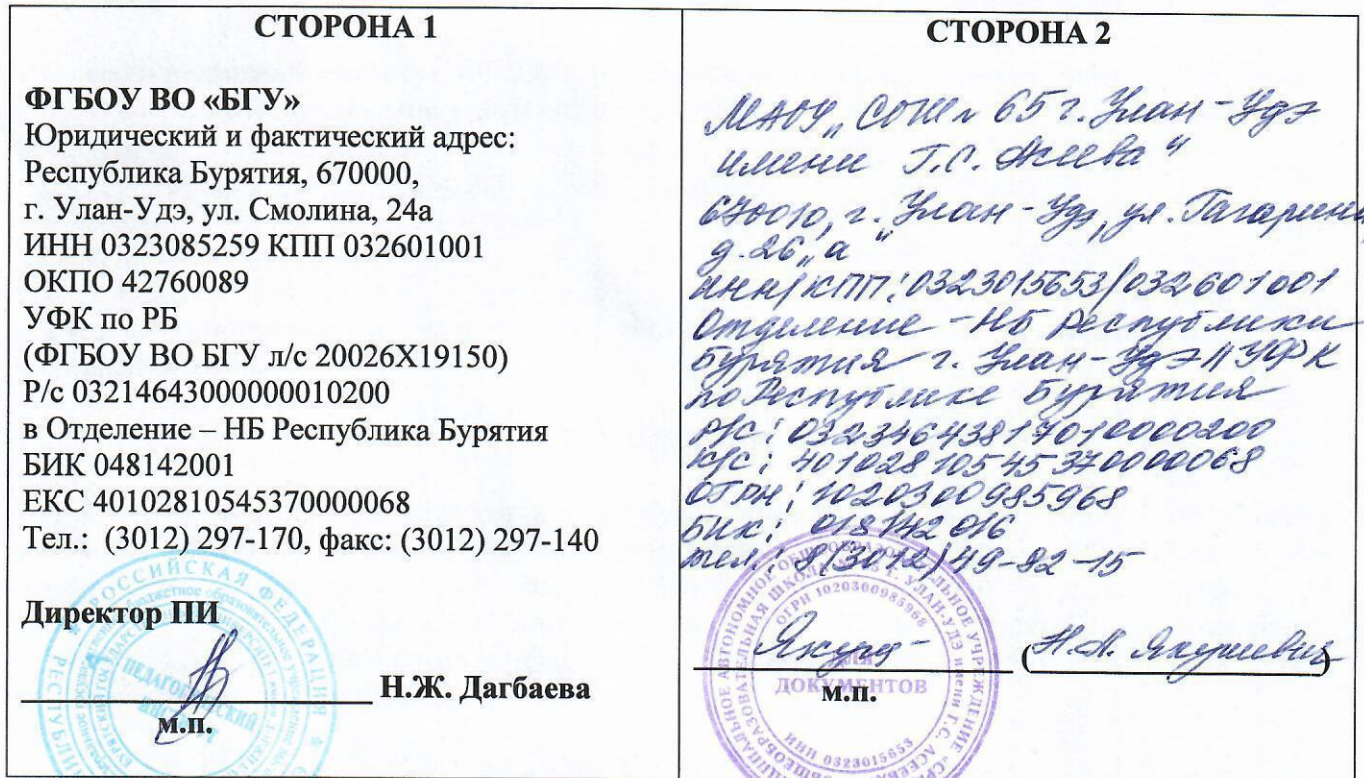 СТОРОНА 1
ФГБОУ ВО «БГУ»
Юридический и фактический адрес:
Республика Бурятия, 670000,
г. Улан-Удэ, ул. Смолина, 24а
ИНН 0323085259 КПП 032601001
ОКПО 42760089
УФК по РБ
(ФГБОУ ВО БГУ л/с 20026Х19150)
Р/с 03214643000000010200
в Отделение – НБ Республика Бурятия
БИК 048142001
ЕКС 40102810545370000068
Тел.: (3012) 297-170, факс: (3012) 297-140
Директор ПИ
Н.Ж. Дагбаева
м.п.
РОССИЙСКАЯ ФЕДЕРАЦИЯ
ПЕДАГОГИЧЕСКИЙ
ИНСТИТУТ
СТОРОНА 2
МАОУ „СОШ № 65 г. Улан-Удэ
имени Г.С. Асеева"
670010, г. Улан-Удэ, ул. Гагарина,
д. 26 „а"
ИНН/КПП: 0323015653/032601001
Отделение - НБ Республики
Бурятия г. Улан-Удэ // УФК
по Республике Бурятия
р/с: 03234643817010000200
к/с: 40102810545370000068
ОГРН: 1020300985968
БИК: 018142016
тел.: 8(3012)49-82-15
(Н.А. Якушевич)
м.п.
ОГРН 1020300985968
ДЛЯ
ДОКУМЕНТОВ
ИНН 0323015653